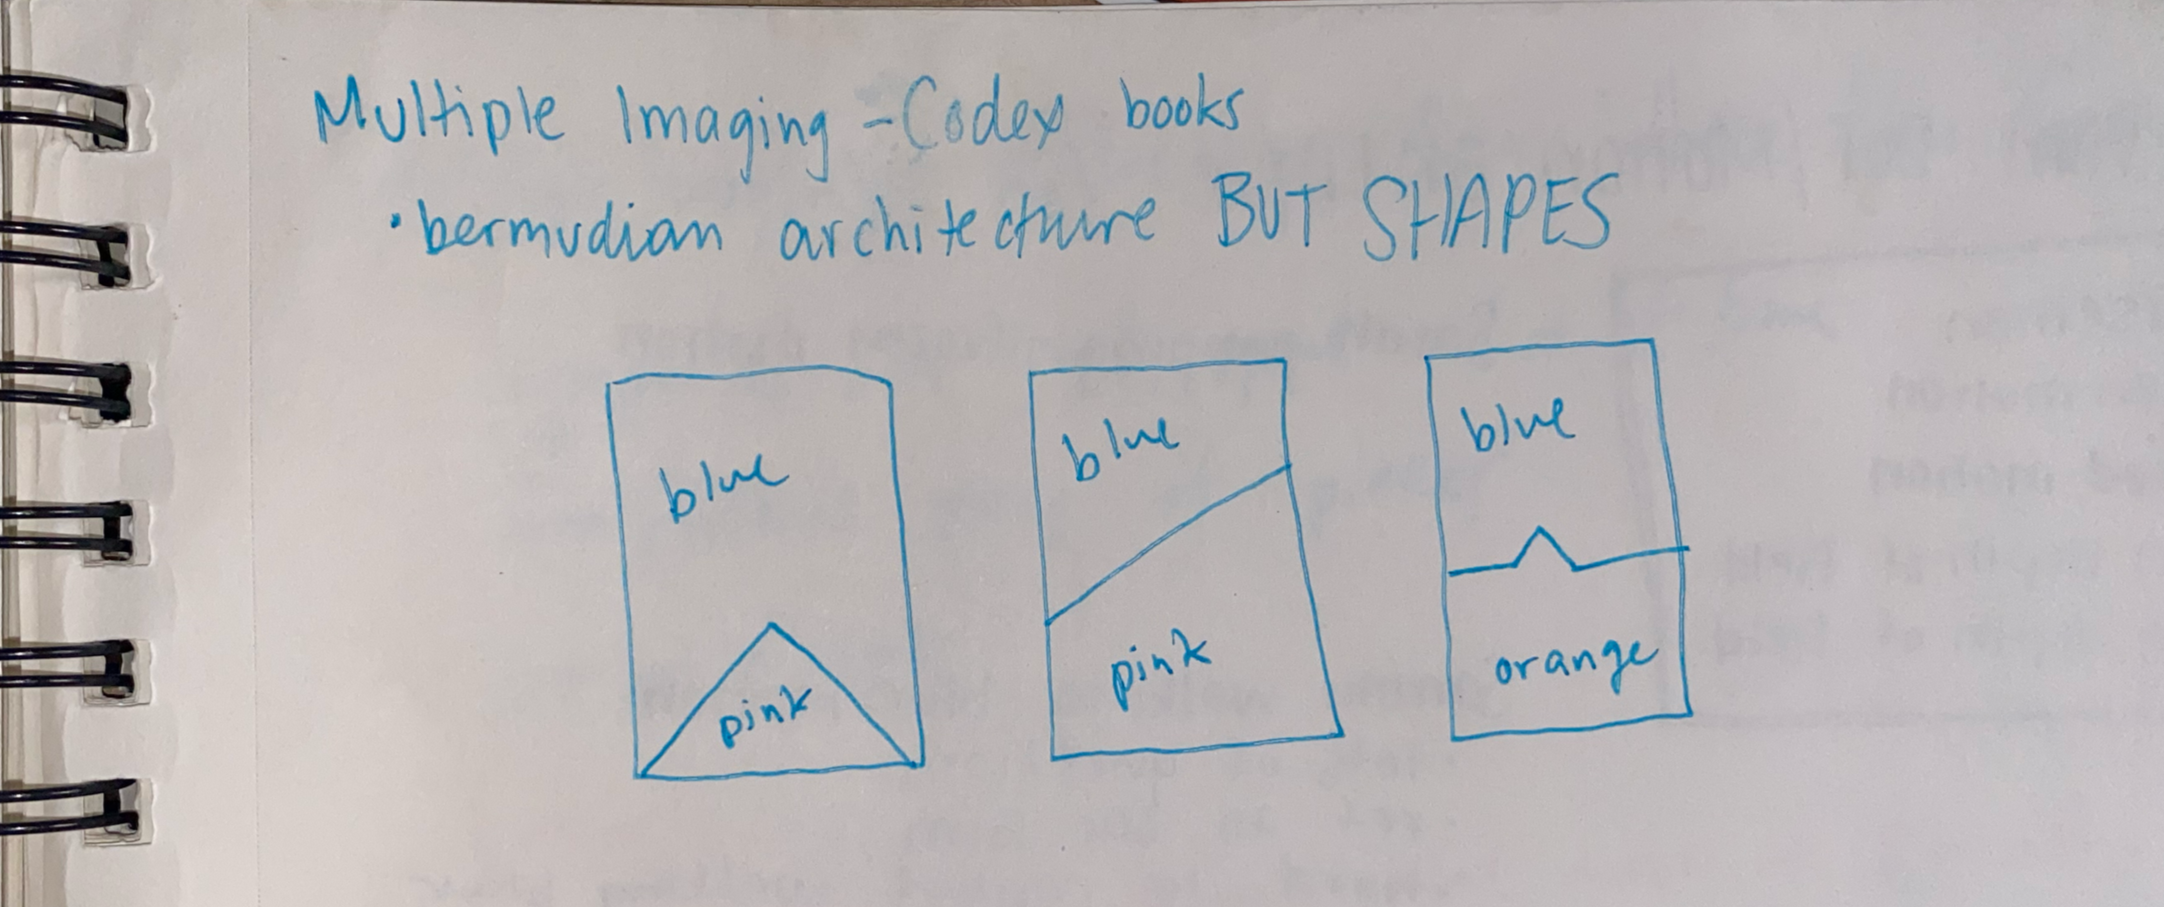 Multiple Imaging - Codex books
• bermudian architecture BUT SHAPES
blue
pink
blue
pink
blue
orange